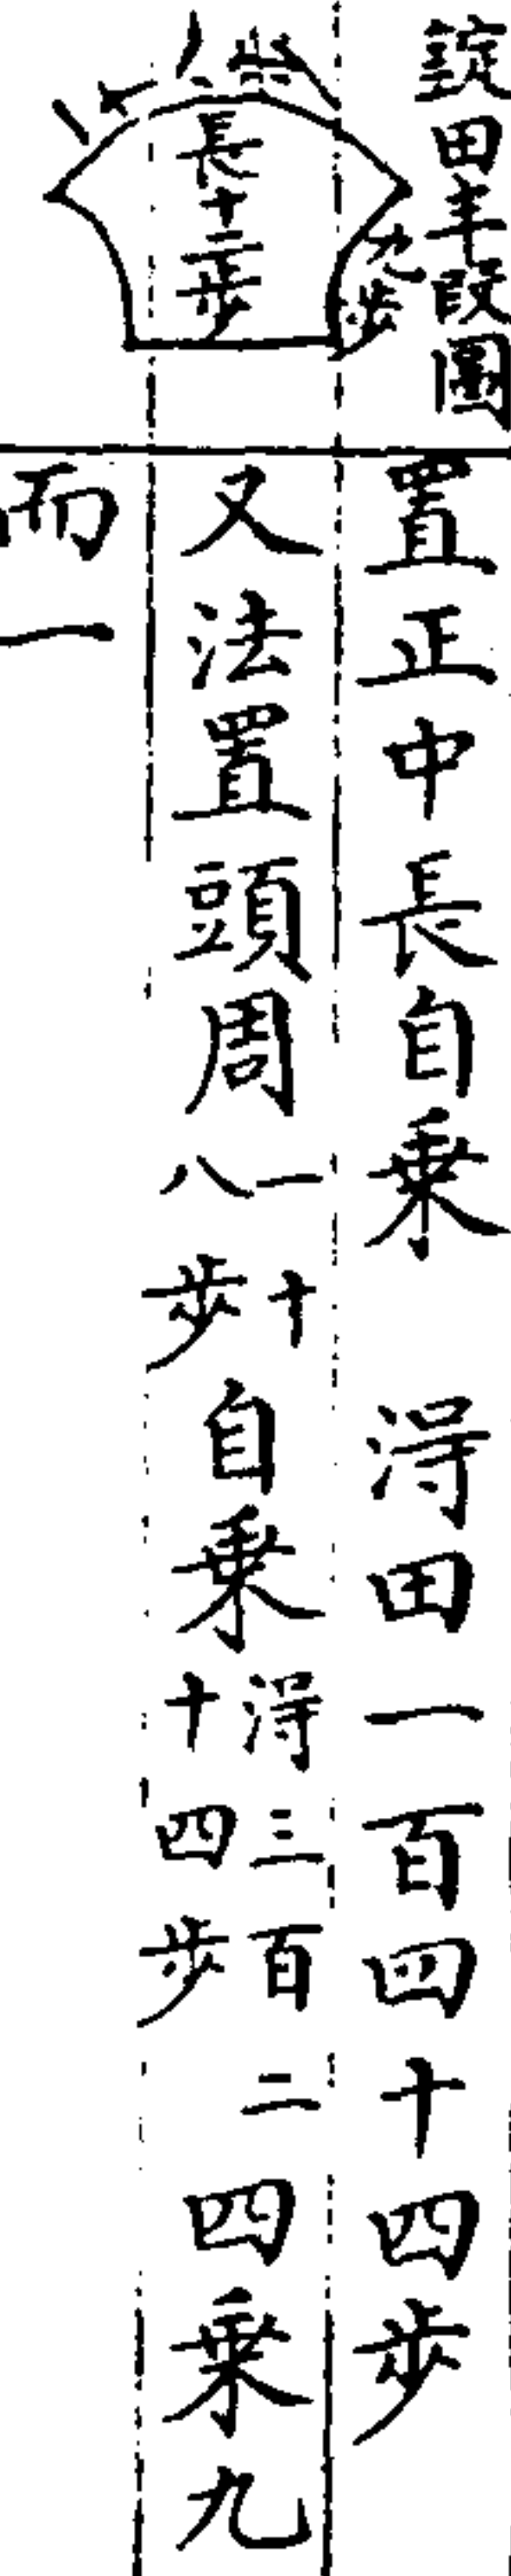 錠田半段圖
一十八步
長十二步
九步
置正中長自乗 淂田一百四十四步
又法置頭周一十八步自乗淂三百二十四步四乗九
而一